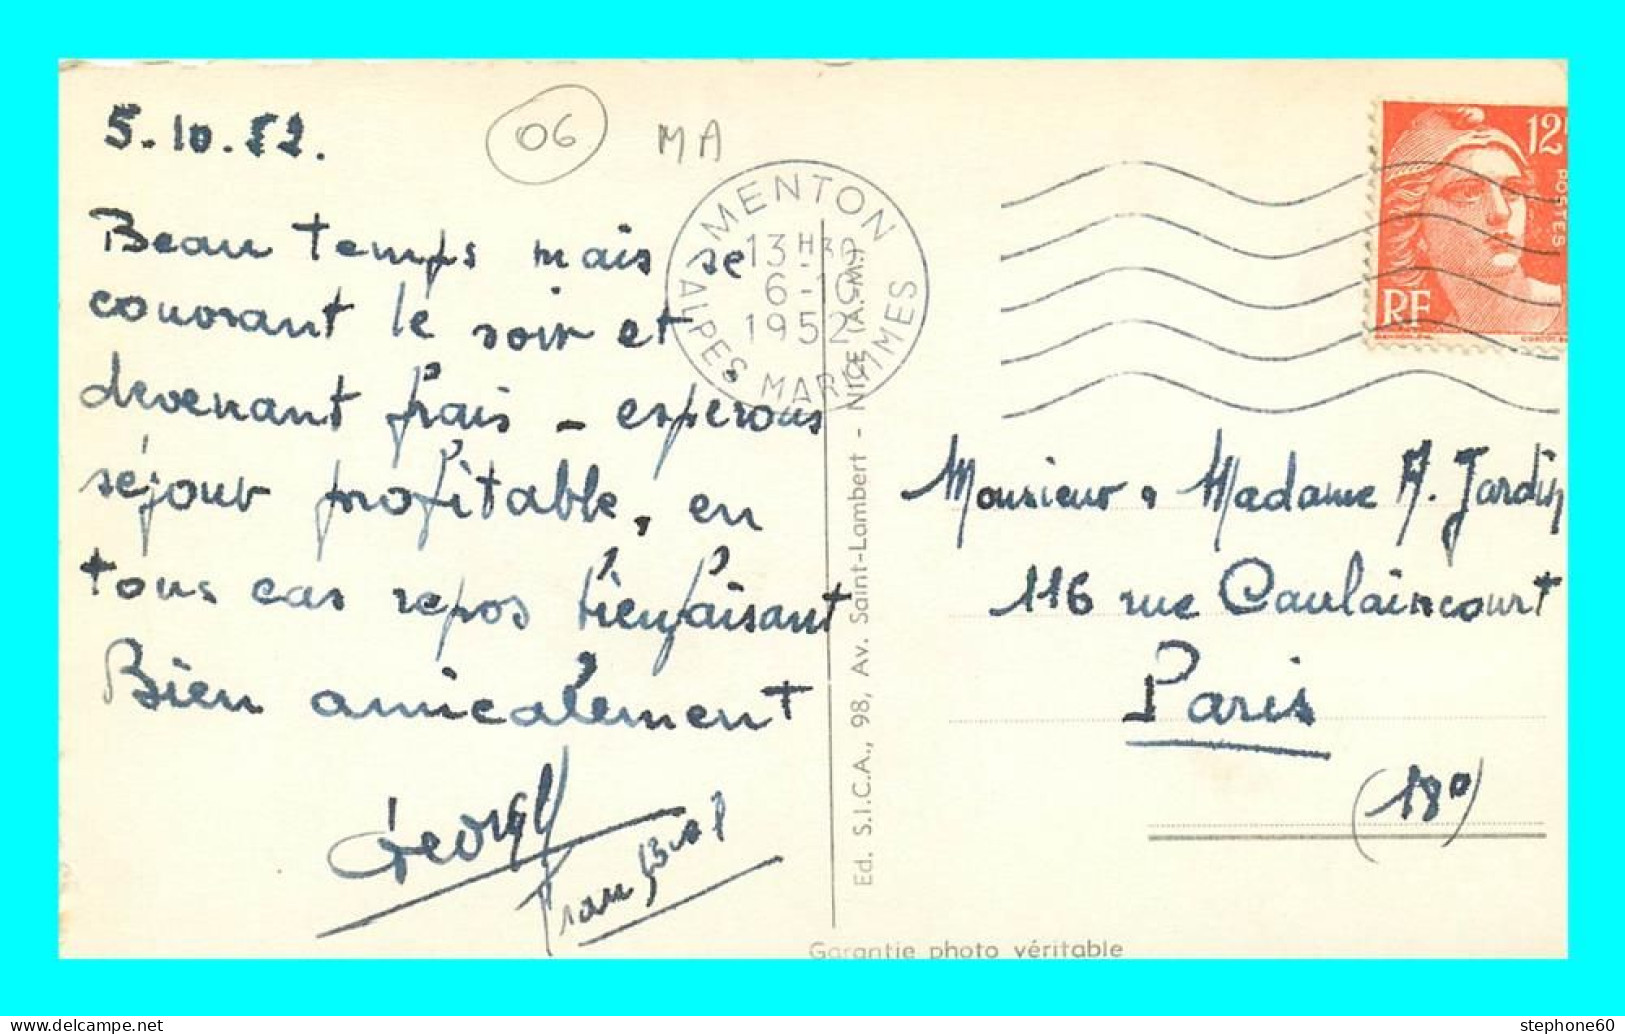 5.10.52.
06
MA
Beau temps mais se
couvrant le soir et
devenant frais - esperons
séjour profitable, en
tous cas repos bienfaisant
Bien amicalement
MENTON
13 H 30
6-10
1952
ALPES MARITIMES
Ed. S.I.C.A., 98, Av. Saint-Lambert - NICE (A.-M.)
12
POSTES
RF
Monsieur & Madame A. Jardin
116 rue Caulaincourt
Paris
(18°)
Garantie photo véritable
stephone60